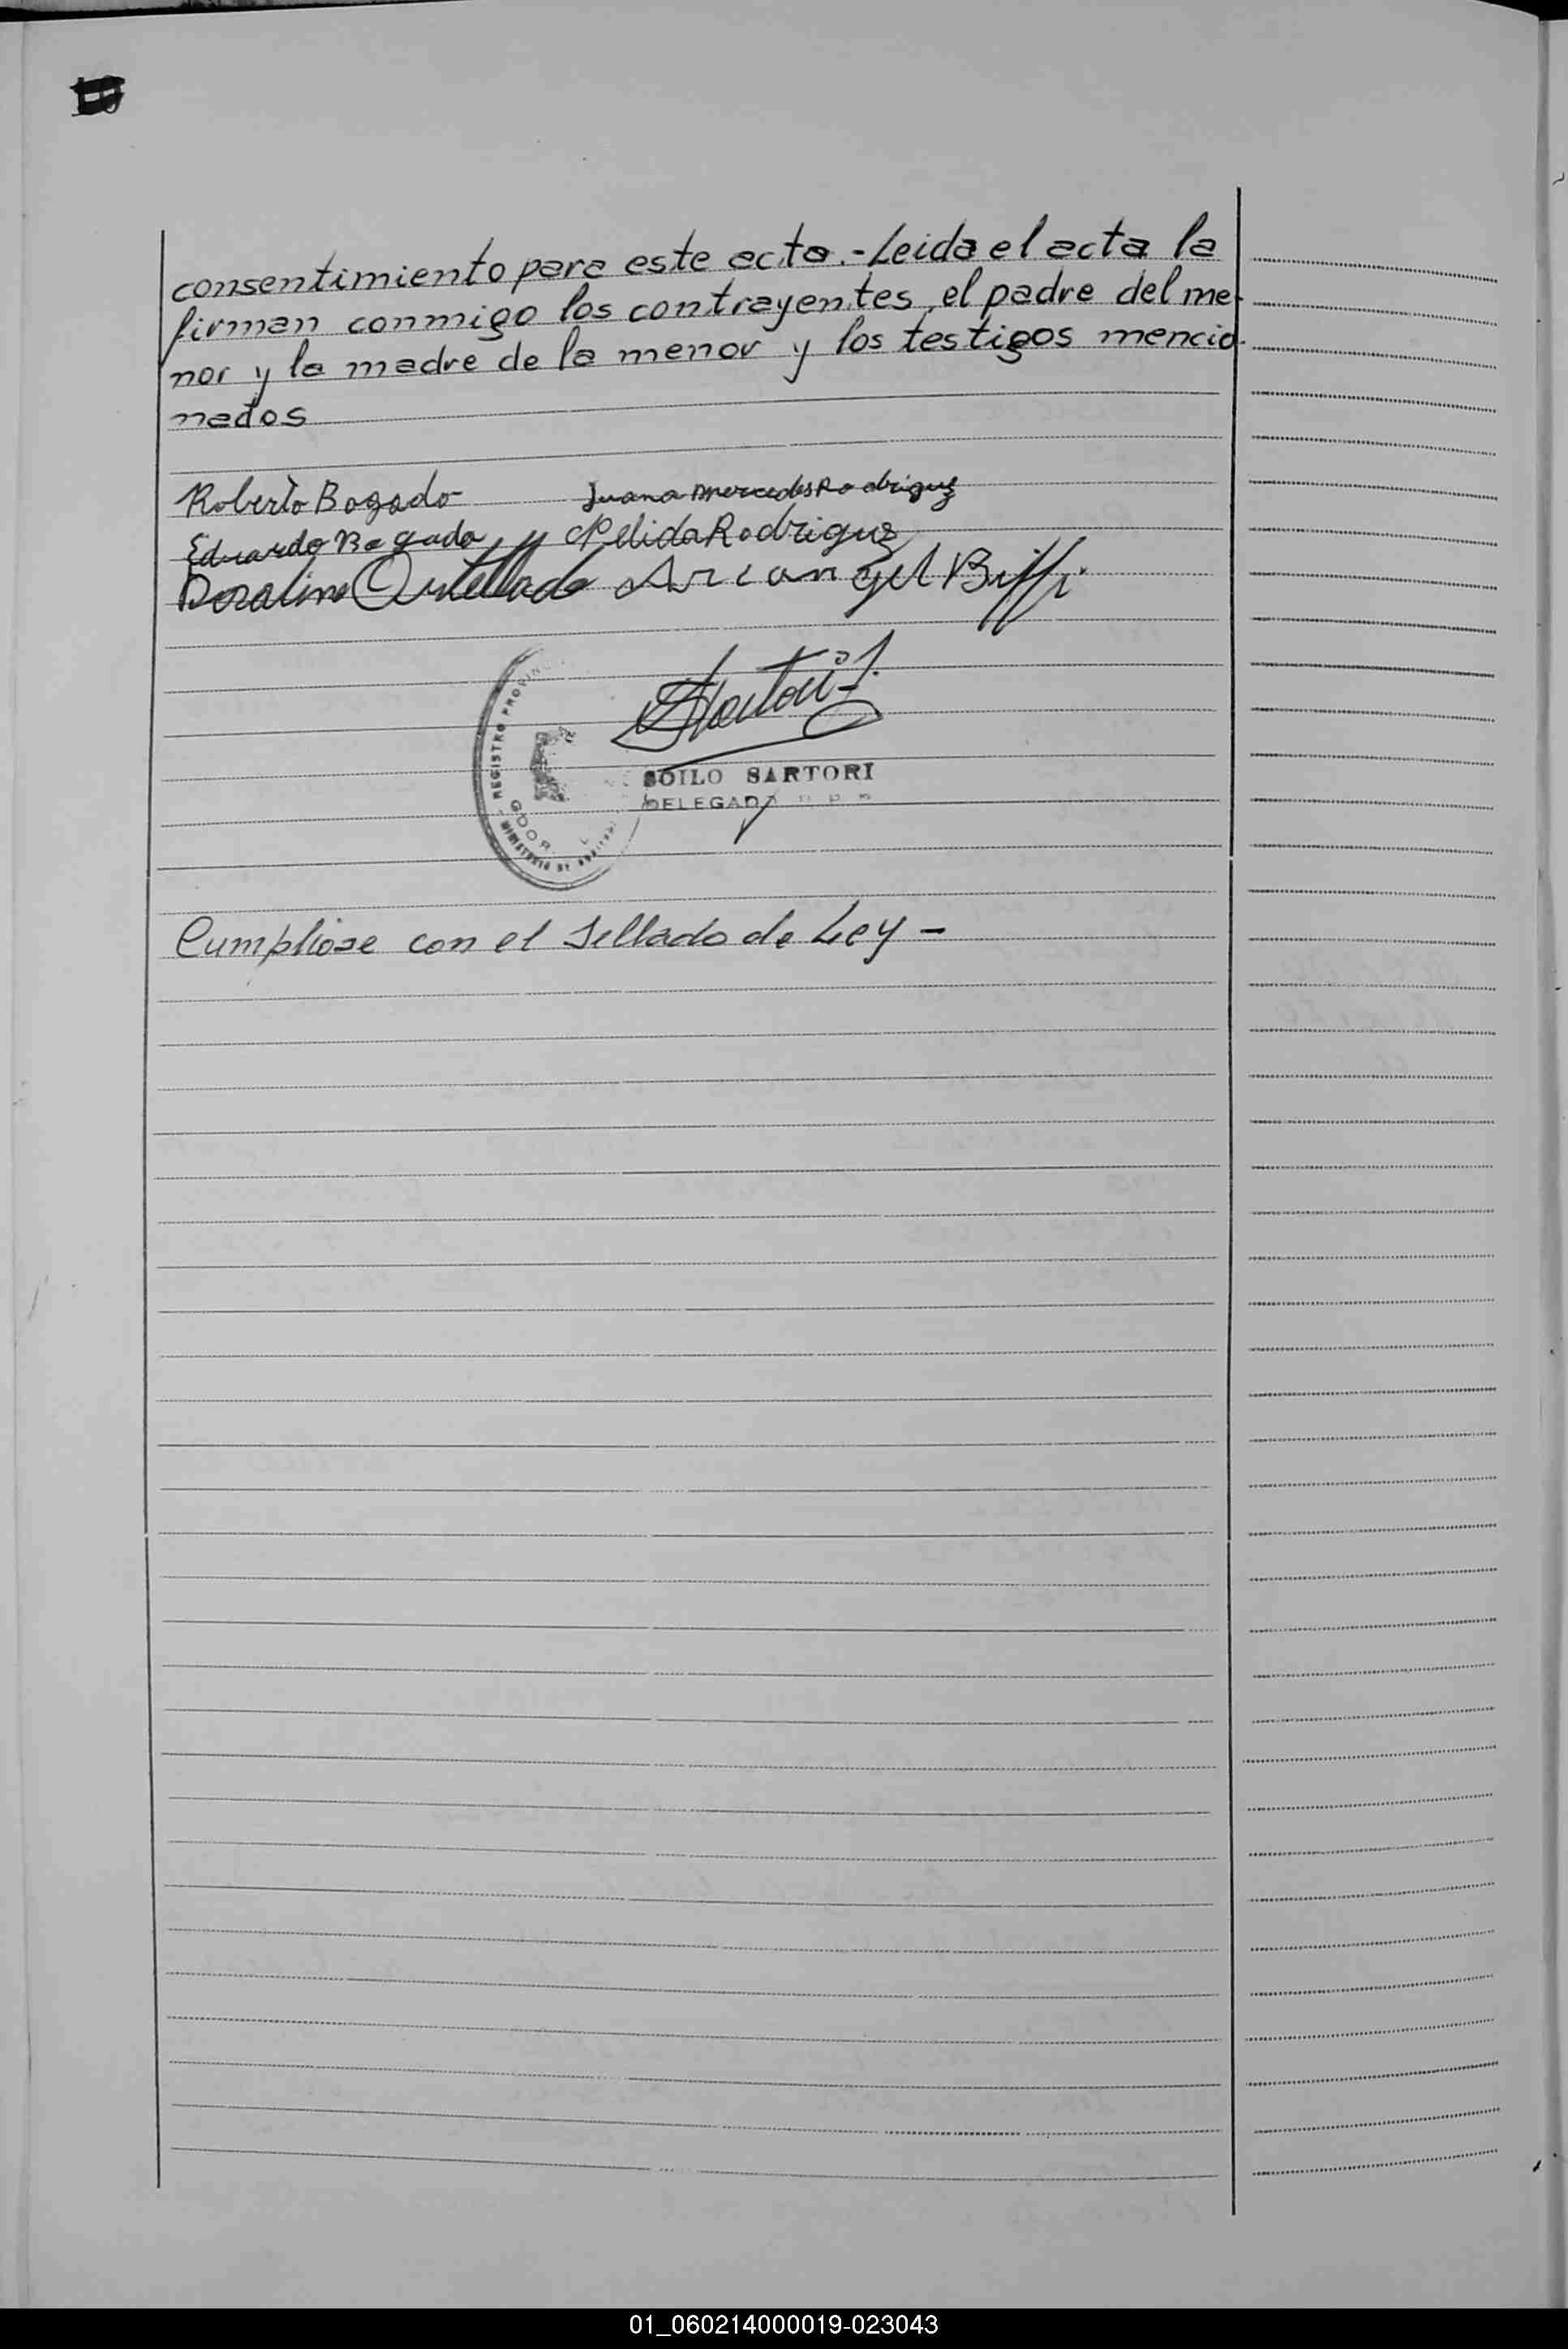 consentimiento para este acto.- Leida el acta la
firman conmigo los contrayentes, el padre del me-
nor y la madre de la menor y los testigos mencio-
nados
Roberto Bogado Juana Mercedes Rodriguez
Eduardo Bogado Nelida Rodriguez
Doralino Quintellado Arcangel Biffi
Sartori S.
REGISTRO PROVIN
GDOR.
MINISTERIO DE
SOILO SARTORI
DELEGADO
Cumpliose con el Sellado de Ley -
01_060214000019-023043